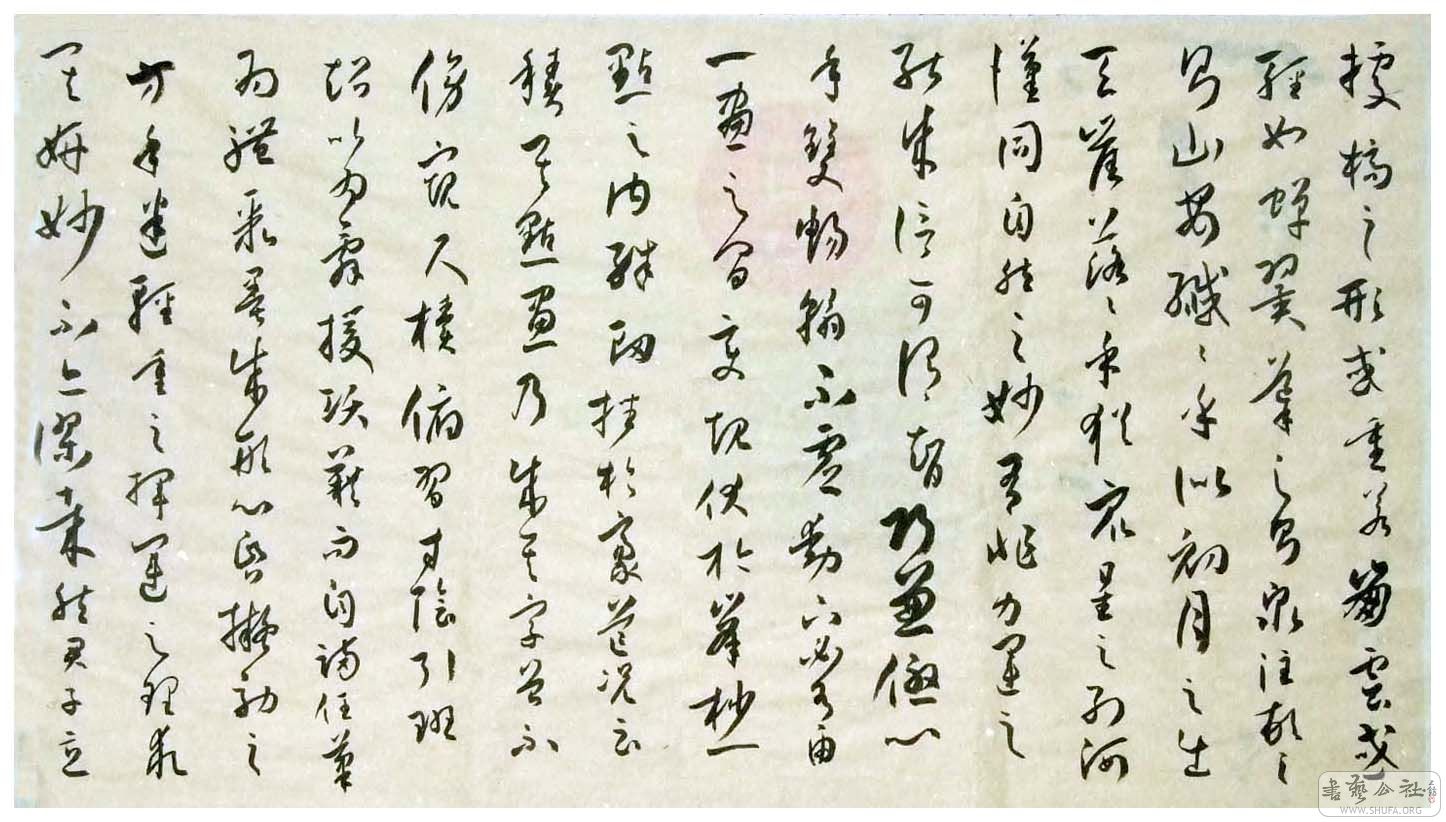 據槁之形或重若崩雲或
輕如蟬翼導之則泉注頓之
則山安纖々乎似初月之出
天崖落々乎猶眾星之列河
漢同自然之妙有非力運之
能成信可謂智巧兼優心
手雙暢翰不虛動下必有由
一畫之間變起伏於峯杪一
點之內殊衄挫於豪芒況云
積其點畫乃成其字曾不
傍窺尺牘俯習寸陰引班
超以為辭援項籍而自滿任筆
為體聚墨成形心昏擬效之
方手迷輕重之揮運之理求
其妍妙不亦謬哉然君子立
書藝公社
WWW.SHUFA.ORG